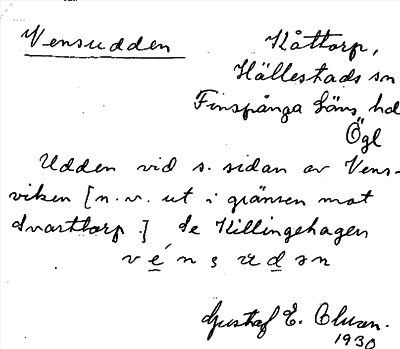 Vensudden
Kåttorp,
Hällestads sn
Finspånga läns hd
Ögl
Udden vid s. sidan av Vens-
viken [n. v. ut i gränsen mot
Svarttorp.] se Killingehagen
Gustaf E.
1930